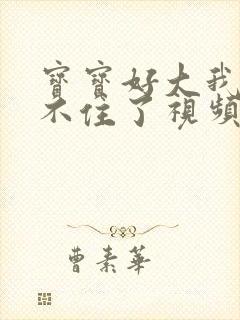 寶寶好大我
不住了視頻
曹素華